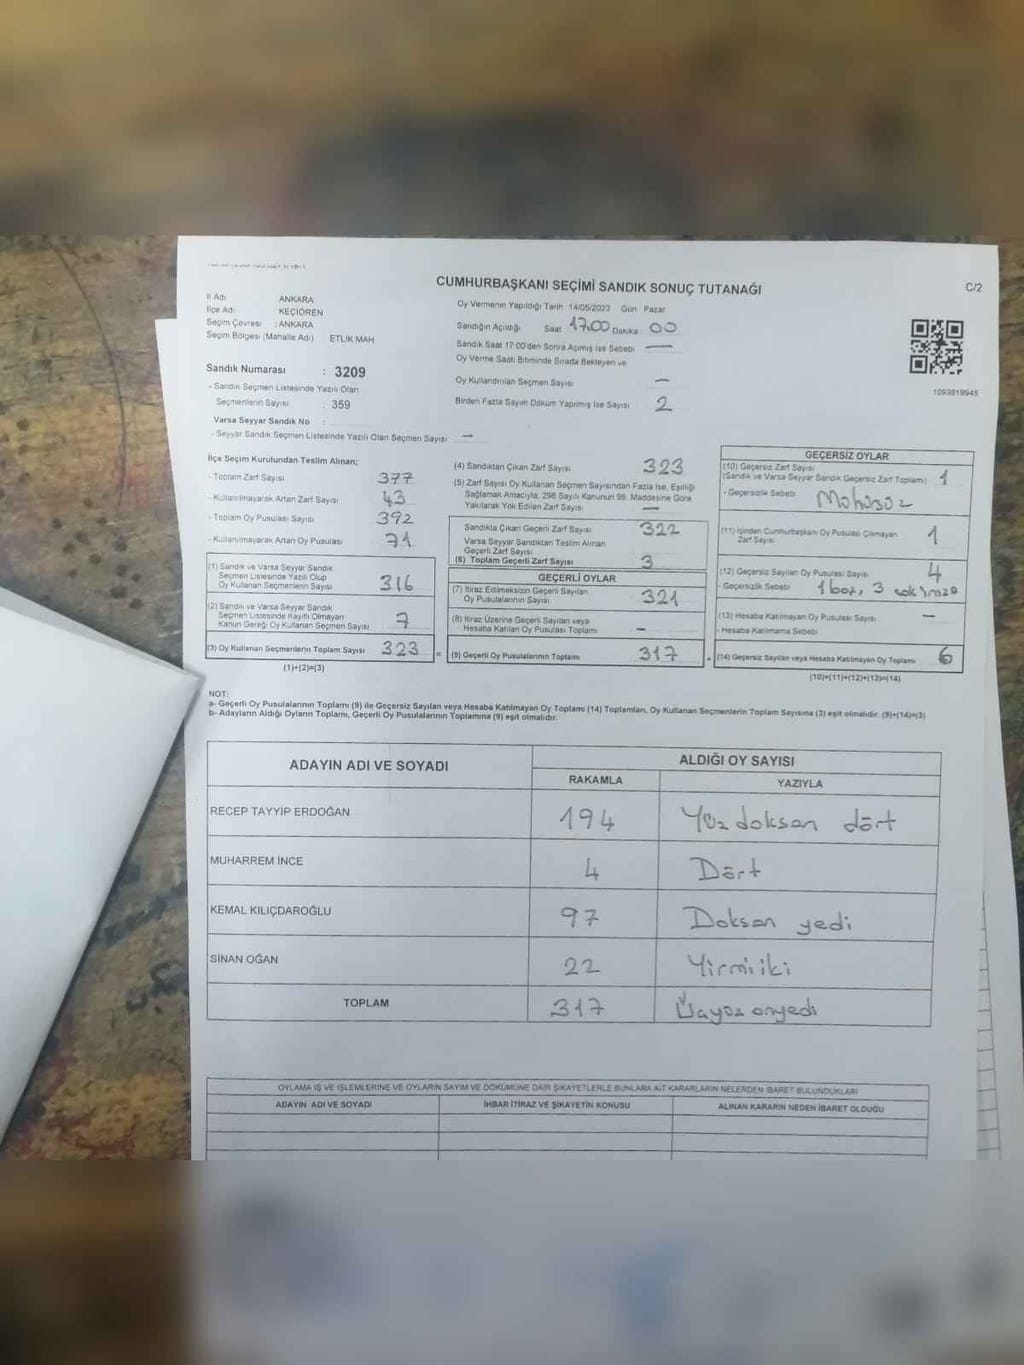 CUMHURBAŞKANI SEÇİMİ SANDIK SONUÇ TUTANAĞI
C/2
İl Adı ANKARA
İlçe Adı KEÇİÖREN
Seçim Çevresi : ANKARA
Seçim Bölgesi (Mahalle Adı) ETLİK MAH
Sandık Numarası : 3209
- Sandık Seçmen Listesinde Yazılı Olan
Seçmenlerin Sayısı : 359
Varsa Seyyar Sandık No :
- Seyyar Sandık Seçmen Listesinde Yazılı Olan Seçmen Sayısı —
Oy Vermenin Yapıldığı Tarih 14/05/2023 Gün Pazar
Sandığın Açıldığı Saat 17.00 Dakika 00
Sandık Saat 17:00'den Sonra Açılmış İse Sebebi —
Oy Verme Saati Bitiminde Sırada Bekleyen ve
Oy Kullandırılan Seçmen Sayısı —
Birden Fazla Sayım Döküm Yapılmış İse Sayısı 2
1093819945
İlçe Seçim Kurulundan Teslim Alınan;
- Toplam Zarf Sayısı 377
- Kullanılmayarak Artan Zarf Sayısı 43
- Toplam Oy Pusulası Sayısı 392
- Kullanılmayarak Artan Oy Pusulası 71
(1) Sandık ve Varsa Seyyar Sandık
Seçmen Listesinde Yazılı Olup
Oy Kullanan Seçmenlerin Sayısı 316
(2) Sandık ve Varsa Seyyar Sandık
Seçmen Listesinde Kayıtlı Olmayan
Kanun Gereği Oy Kullanan Seçmen Sayısı 7
(3) Oy Kullanan Seçmenlerin Toplam Sayısı 323 =
(1)+(2)=(3)
(4) Sandıktan Çıkan Zarf Sayısı 323
(5) Zarf Sayısı Oy Kullanan Seçmen Sayısından Fazla İse, Eşitliği
Sağlamak Amacıyla, 298 Sayılı Kanunun 98. Maddesine Göre
Yakılarak Yok Edilen Zarf Sayısı —
Sandıkta Çıkan Geçerli Zarf Sayısı 322
Varsa Seyyar Sandıktan Teslim Alınan
Geçerli Zarf Sayısı
(6) Toplam Geçerli Zarf Sayısı 3
GEÇERLİ OYLAR
(7) İtiraz Edilmeksizin Geçerli Sayılan
Oy Pusulalarının Sayısı 321
(8) İtiraz Üzerine Geçerli Sayılan veya
Hesaba Katılan Oy Pusulası Toplamı —
(9) Geçerli Oy Pusulalarının Toplamı 317 +
GEÇERSİZ OYLAR
(10) Geçersiz Zarf Sayısı
(Sandık ve Varsa Seyyar Sandık Geçersiz Zarf Toplamı) 1
- Geçersizlik Sebebi Mühürsüz
(11) İçinden Cumhurbaşkanı Oy Pusulası Çıkmayan
Zarf Sayısı 1
(12) Geçersiz Sayılan Oy Pusulası Sayısı 4
- Geçersizlik Sebebi 1 boş, 3
(13) Hesaba Katılmayan Oy Pusulası Sayısı —
- Hesaba Katılmama Sebebi
(14) Geçersiz Sayılan veya Hesaba Katılmayan Oy Toplamı 6
(10)+(11)+(12)+(13)=(14)
NOT:
a- Geçerli Oy Pusulalarının Toplamı (9) ile Geçersiz Sayılan veya Hesaba Katılmayan Oy Toplamı (14) Toplamları, Oy Kullanan Seçmenlerin Toplam Sayısına (3) eşit olmalıdır. (9)+(14)=(3)
b- Adayların Aldığı Oyların Toplamı, Geçerli Oy Pusulalarının Toplamına (9) eşit olmalıdır.
ADAYIN ADI VE SOYADI ALDIĞI OY SAYISI
RAKAMLA YAZIYLA
RECEP TAYYİP ERDOĞAN 194 Yüz doksan dört
MUHARREM İNCE 4 Dört
KEMAL KILIÇDAROĞLU 97 Doksan yedi
SİNAN OĞAN 22 Yirmi iki
TOPLAM 317 Üçyüz onyedi
OYLAMA İŞ VE İŞLEMLERİNE VE OYLARIN SAYIM VE DÖKÜMÜNE DAİR ŞİKAYETLERLE BUNLARA AİT KARARLARIN NELERDEN İBARET BULUNDUKLARI
ADAYIN ADI VE SOYADI İHBAR İTİRAZ VE ŞİKAYETİN KONUSU ALINAN KARARIN NEDEN İBARET OLDUĞU